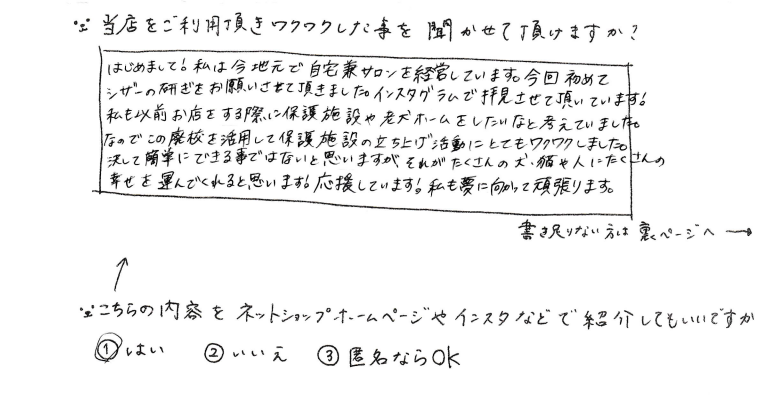 当店をご利用頂きワクワクした事を聞かせて頂けますか？
はじめまして！私は今地元で自宅兼サロンを経営しています。今回初めて
シザーの研ぎをお願いさせて頂きました。インスタグラムで拝見させて頂いています！
私も以前お店をする際に保護施設や老犬ホームをしたいなと考えていました。
なのでこの廃校を活用して保護施設の立ち上げ活動にとてもワクワクしました。
決して簡単にできる事ではないと思いますが、それがたくさんの犬、猫や人にたくさんの
幸せを運んでくれると思います！応援しています！私も夢に向かって頑張ります。
書き足りない方は裏ページへ →
↑
こちらの内容をネットショップホームページやインスタなどで紹介してもいいですか
①はい ②いいえ ③匿名ならOK